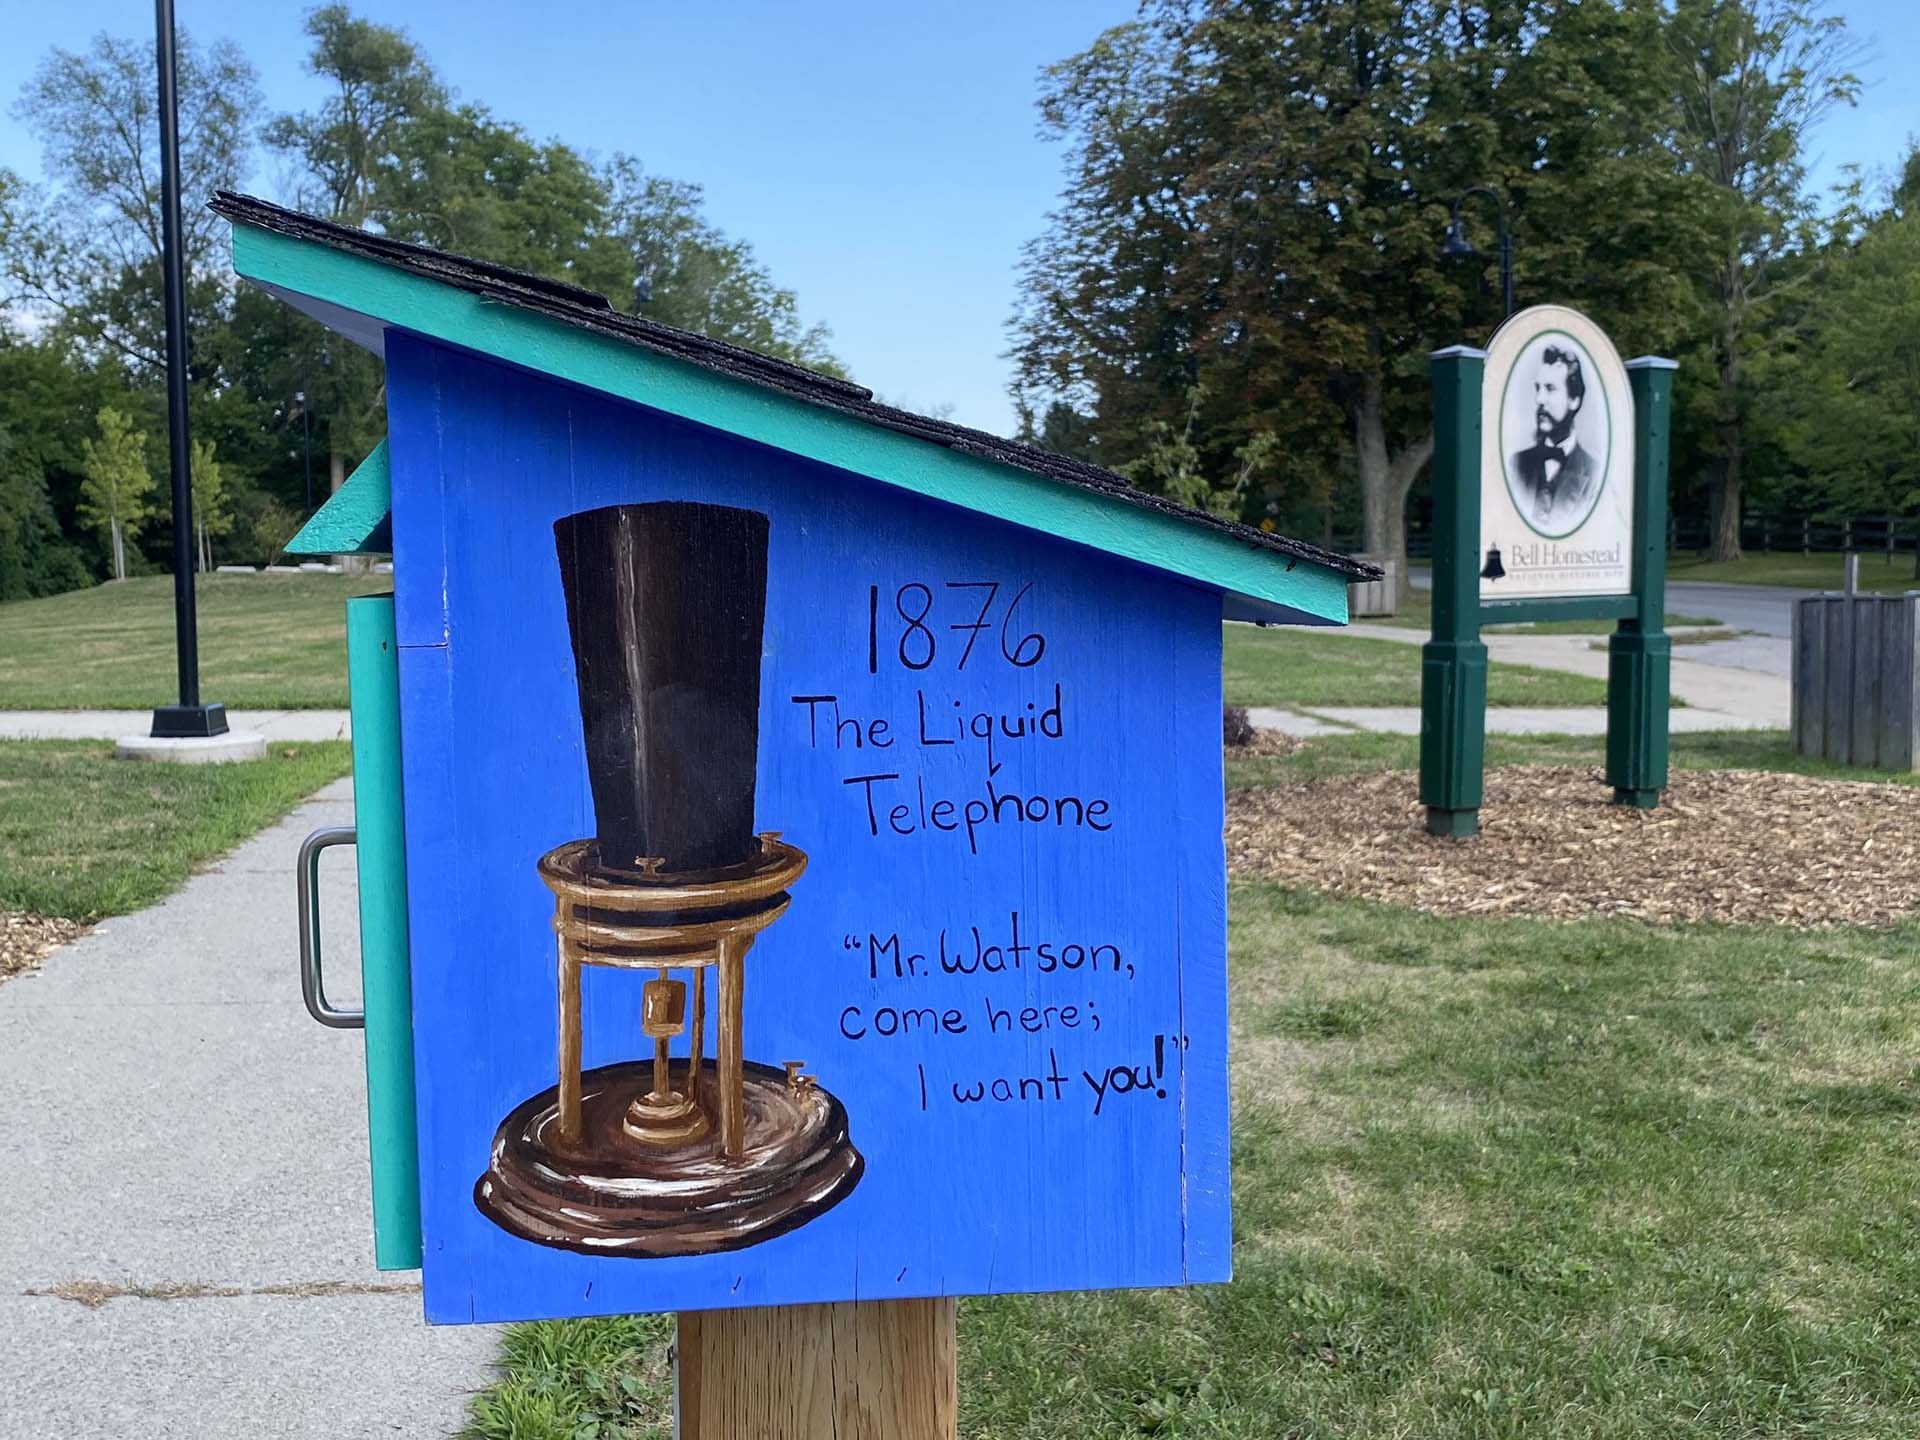 1876
The Liquid
Telephone
“Mr. Watson,
come here;
I want you!”
Bell Homestead
NATIONAL HISTORIC SITE